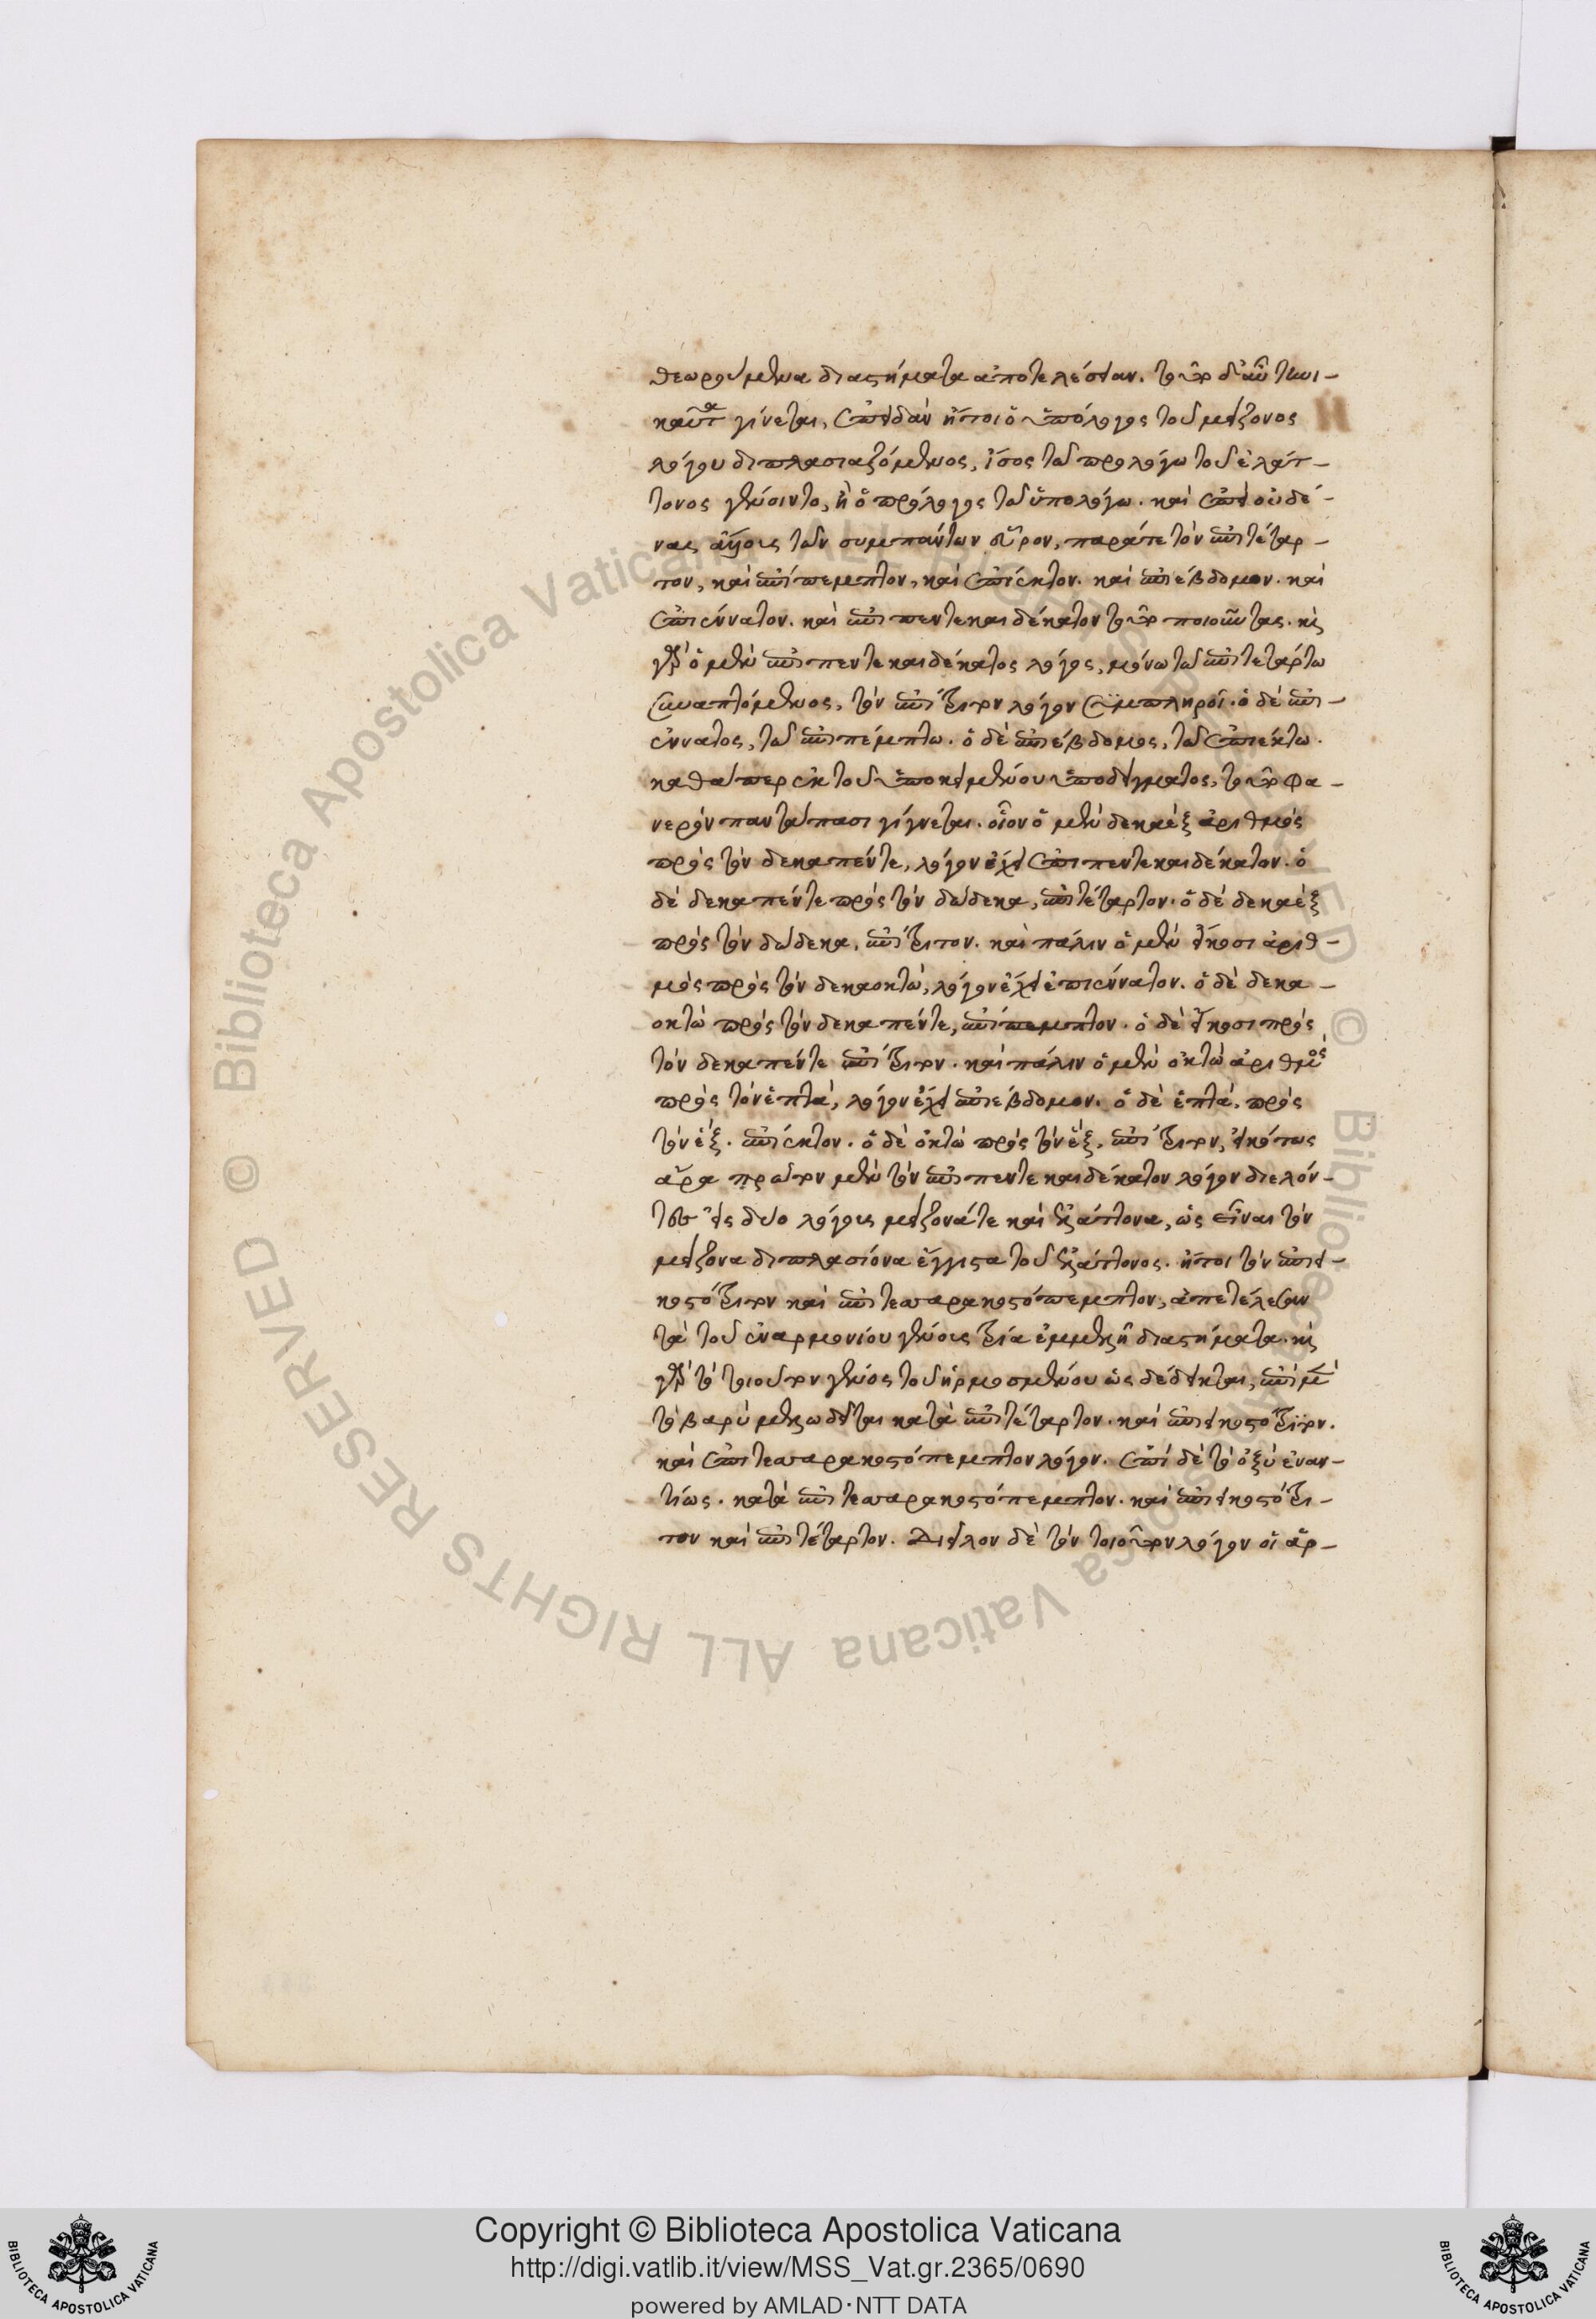 θεωρούμενα διαστήματα ἀποτελέσειαν. τοῦτο δ' αὖ τηνι-
καῦτα γίνεται, ἐπειδὰν ἤτοι ὁ ὑπόλογος τοῦ μείζονος
λόγου διπλασιαζόμενος, ἴσος τῷ προλόγω τοῦ ἐλάτ-
τονος γένοιντο, ἢ ὁ πρόλογος τῷ ὑπολόγω. καὶ ἐπεὶ οὐδέ-
νας ἄλλους τῶν συμπάντων εὗρον, παρά τε τὸν ἐπιτέταρ-
τον, καὶ ἐπίπεμπτον, καὶ ἐπίεκτον. καὶ ἐπιέβδομον. καὶ
ἐπιέννατον. καὶ ἐπιπεντεκαιδέκατον τοῦτο ποιοῦντας. καὶ
γὰρ ὁ μὲν ἐπιπεντεκαιδέκατος λόγος, μόνω τῷ ἐπιτετάρτω
συναπτόμενος, τὸν ἐπίτριτον λόγον συμπληροῖ. ὁ δὲ ἐπι-
έννατος, τῷ ἐπιπέμπτω. ὁ δὲ ἐπιέβδομος, τῷ ἐπιέκτω.
καθάπερ ἐκ τοῦ ὑποκειμένου ὑποδείγματος, τοῦτο φα-
νερὸν παντάπασι γίγνεται. οἷον ὁ μὲν δεκαὲξ ἀριθμὸς
πρὸς τὸν δεκαπέντε, λόγον ἔχει ἐπιπεντεκαιδέκατον. ὁ
δὲ δεκαπέντε πρὸς τὸν δώδεκα, ἐπιτέταρτον. ὁ δὲ δεκαὲξ
πρὸς τὸν δώδεκα, ἐπίτριτον. καὶ πάλιν ὁ μὲν εἴκοσι ἀριθ-
μὸς πρὸς τὸν δεκαοκτὼ, λόγον ἔχει ἐπιέννατον. ὁ δὲ δεκα-
οκτὼ πρὸς τὸν δεκαπέντε, ἐπίπεμπτον. ὁ δὲ εἴκοσι πρὸς
τὸν δεκαπέντε ἐπίτριτον. καὶ πάλιν ὁ μὲν ὀκτὼ ἀριθμὸς
πρὸς τὸν ἑπτὰ, λόγον ἔχει ἐπιέβδομον. ὁ δὲ ἑπτὰ, πρὸς
τὸν ἓξ. ἐπίεκτον. ὁ δὲ ὀκτὼ πρὸς τὸν ἓξ, ἐπίτριτον, εἰκότως
ἄρα πρῶτον μὲν τὸν ἐπιπεντεκαιδέκατον λόγον διελόν-
τες εἰς δύο λόγους μείζονά τε καὶ ἐλάττονα, ὡς εἶναι τὸν
μείζονα διπλασίονα ἔγγιστα τοῦ ἐλάττονος. ἤτοι τὸν ἐπιει-
κοστότριτον καὶ ἐπιτεσσαρακοστόπεμπτον, ἀπετέλεσαν
τὰ τοῦ ἐναρμονίου γένους τρία ἐμμελῆ διαστήματα. καὶ
γὰρ τὸ τοιοῦτον γένος τοῦ ἡρμοσμένου ὡς δέδεικται, ἐπὶ μὲν
τὸ βαρὺ μελῳδεῖται κατὰ ἐπιτέταρτον. καὶ ἐπιεικοστότριτον.
καὶ ἐπιτεσσαρακοστόπεμπτον λόγον. ἐπὶ δὲ τὸ ὀξὺ ἐναν-
τίως. κατὰ ἐπιτεσσαρακοστόπεμπτον. καὶ ἐπιεικοστότρι-
τον καὶ ἐπιτέταρτον. Διεῖλον δὲ τὸν τοιοῦτον λόγον οἱ ἁρ-
Copyright © Biblioteca Apostolica Vaticana
http://digi.vatlib.it/view/MSS_Vat.gr.2365/0690
powered by AMLAD·NTT DATA
BIBLIOTECA APOSTOLICA VATICANA
BIBLIOTECA APOSTOLICA VATICANA
© Biblioteca Apostolica Vaticana ALL RIGHTS RESERVED © Biblioteca Apostolica Vaticana ALL RIGHTS RESERVED